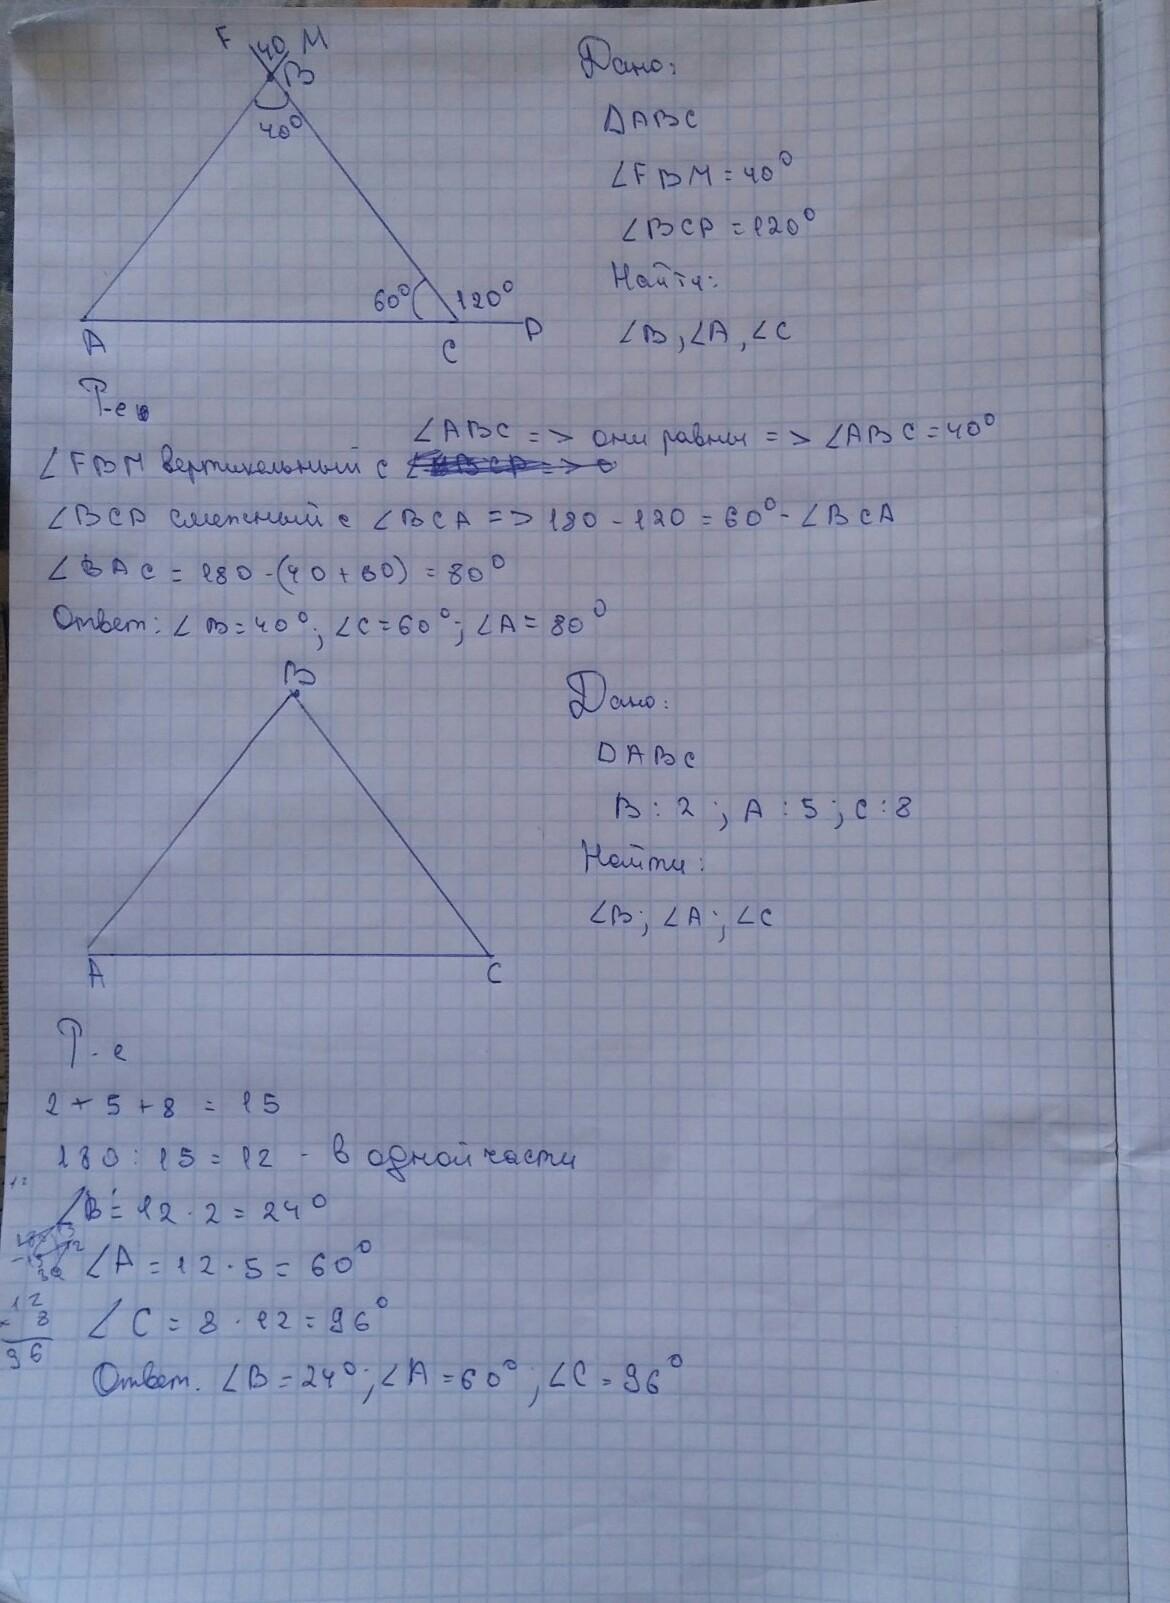 F 40 M
B
40°
60° 120°
A C P
Дано:
ΔABC
∠FBM = 40°
∠BCP = 120°
Найти:
∠B, ∠A, ∠C
Р-е
∠ABC => они равны => ∠ABC = 40°
∠FBM вертикальный с
∠BCP смежный с ∠BCA => 180 - 120 = 60° - ∠BCA
∠BAC = 180 - (40 + 60) = 80°
Ответ: ∠B = 40°; ∠C = 60°; ∠A = 80°
B
A C
Дано:
ΔABC
B : 2 ; A : 5 ; C : 8
Найти:
∠B; ∠A; ∠C
Р-е
2 + 5 + 8 = 15
180 : 15 = 12 - в одной части
∠B = 12 · 2 = 24°
∠A = 12 · 5 = 60°
12
8
96
∠C = 8 · 12 = 96°
Ответ. ∠B = 24°; ∠A = 60°; ∠C = 96°